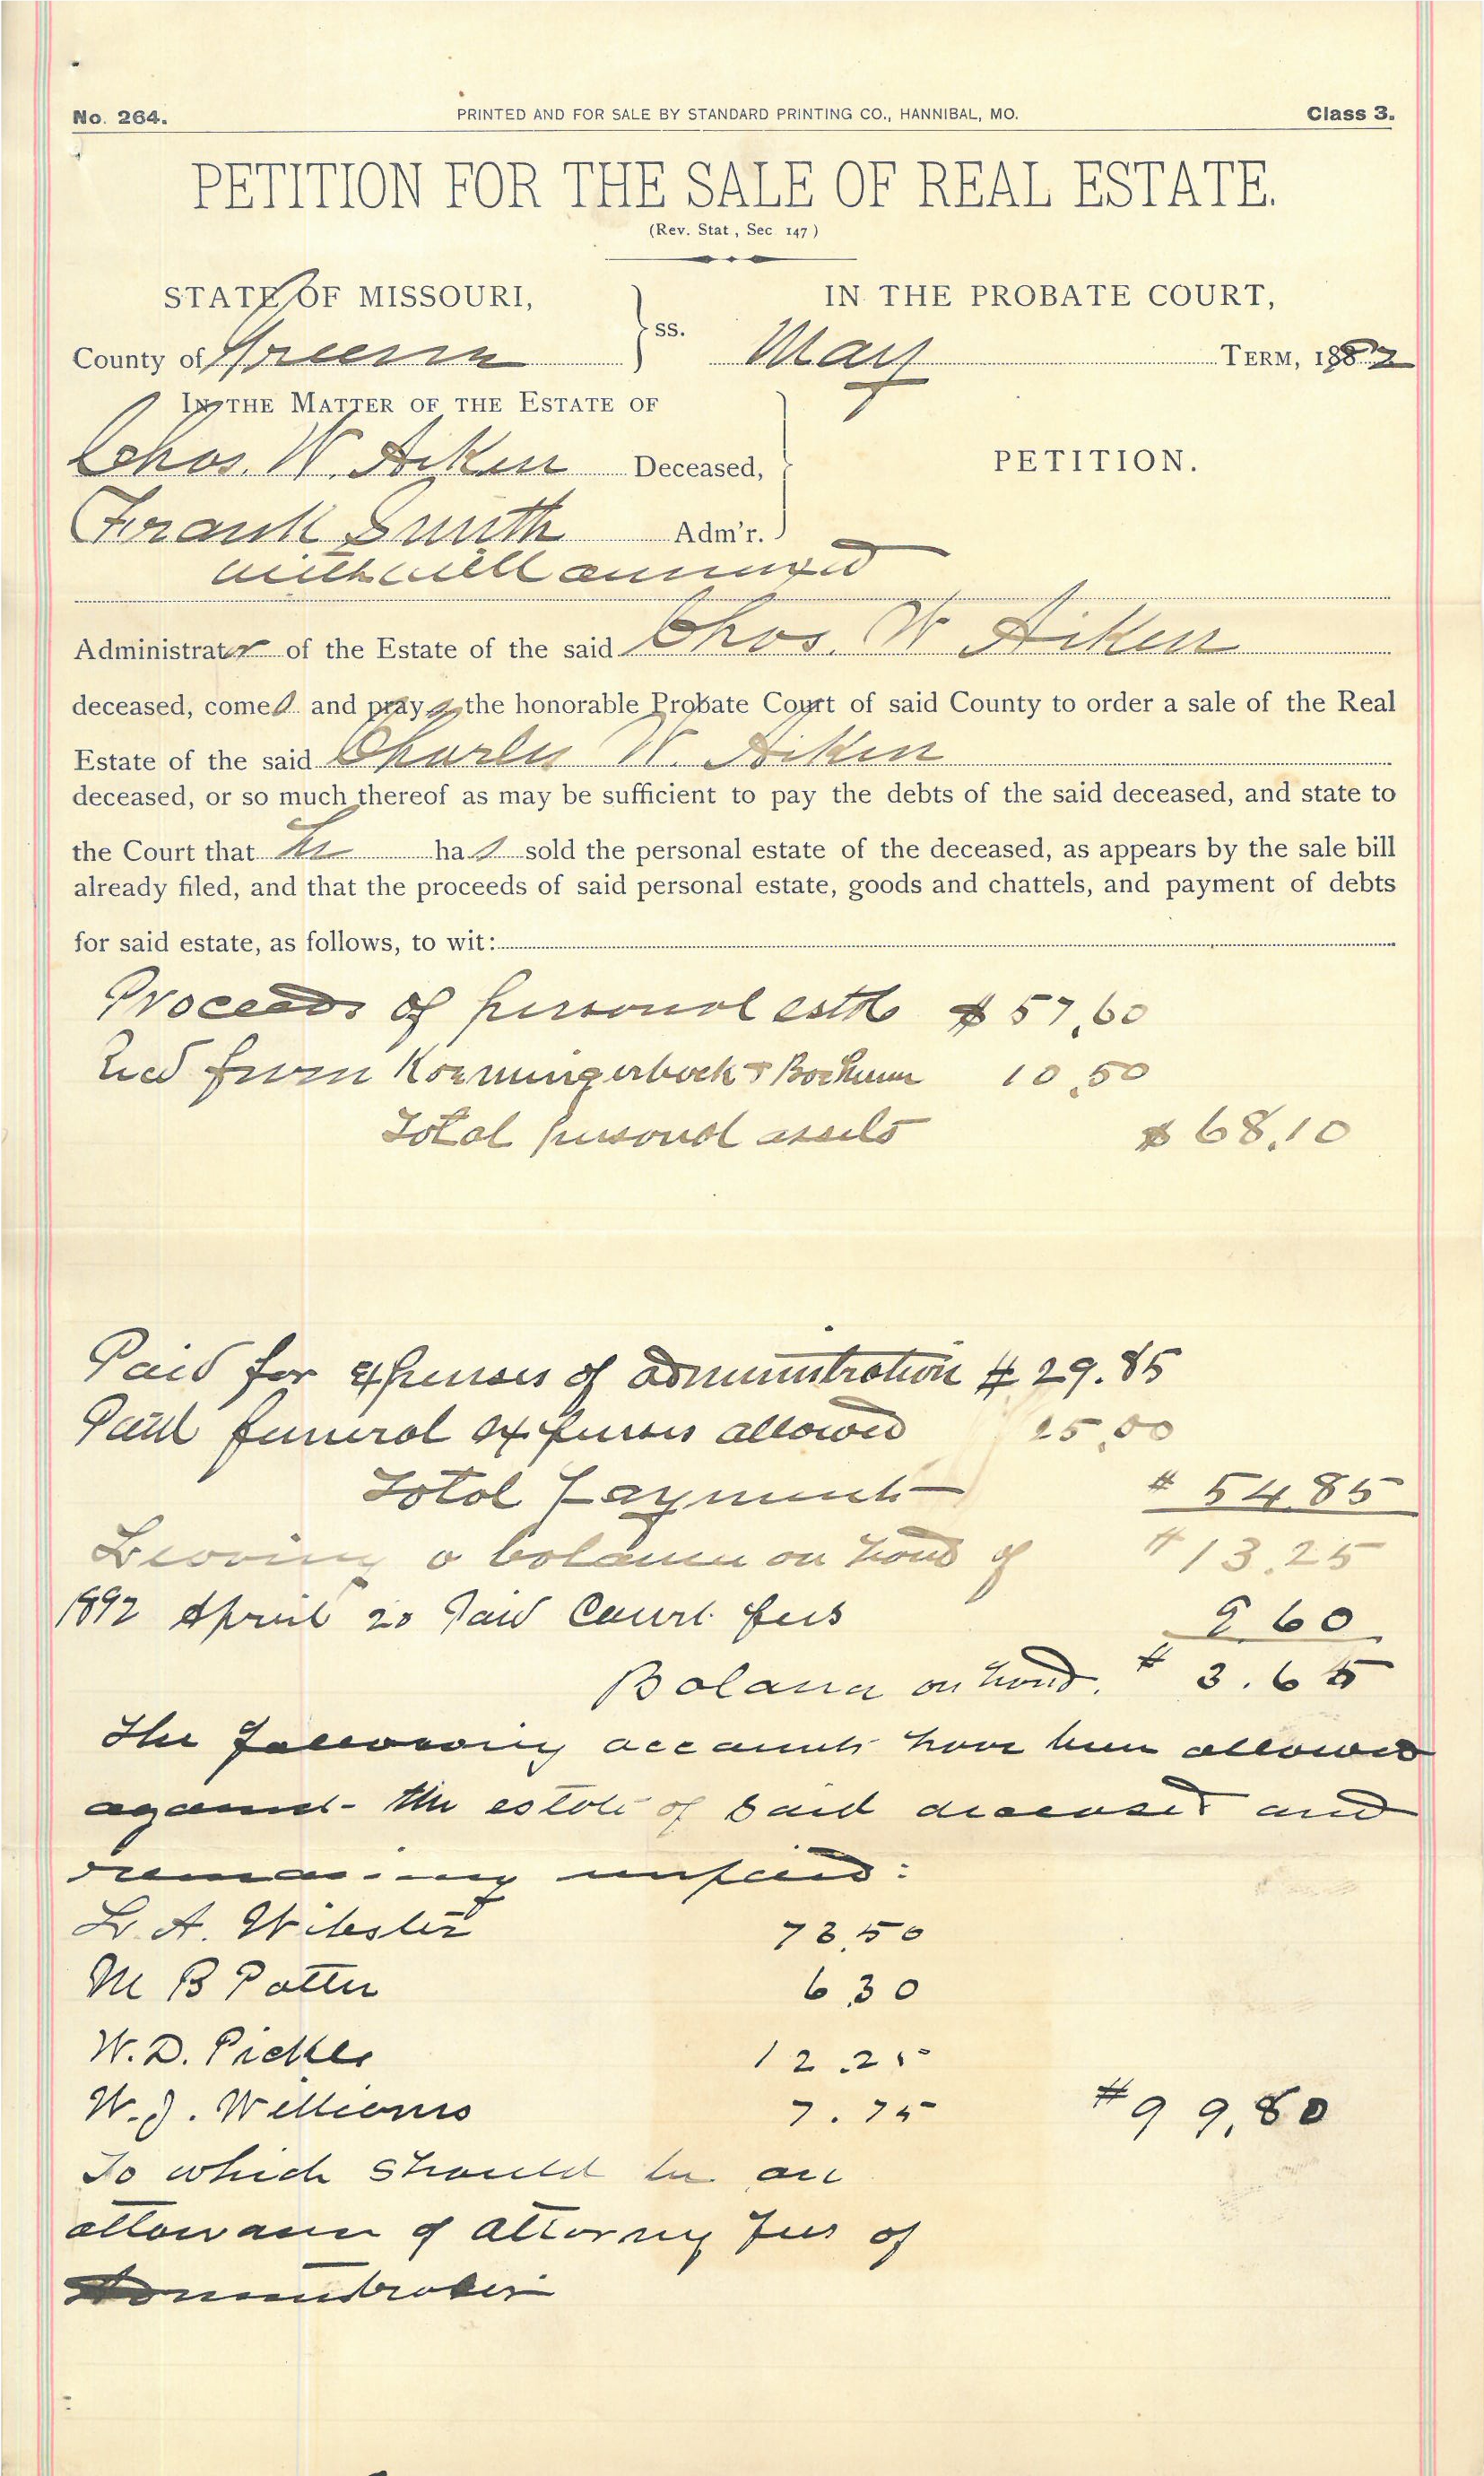 No. 264. PRINTED AND FOR SALE BY STANDARD PRINTING CO., HANNIBAL, MO. Class 3.
PETITION FOR THE SALE OF REAL ESTATE.
(Rev. Stat, Sec 147)
STATE OF MISSOURI, IN THE PROBATE COURT,
County of Greene ss. May TERM, 1892
IN THE MATTER OF THE ESTATE OF
Chas. W. Aiken Deceased, PETITION.
Frank Smith Adm'r.
with will annexed
Administrator of the Estate of the said Chas. W Aiken
deceased, comes and prays the honorable Probate Court of said County to order a sale of the Real
Estate of the said Charles W. Aiken
deceased, or so much thereof as may be sufficient to pay the debts of the said deceased, and state to
the Court that he has sold the personal estate of the deceased, as appears by the sale bill
already filed, and that the proceeds of said personal estate, goods and chattels, and payment of debts
for said estate, as follows, to wit:
Proceeds of personal estate $57.60
Recd from 10.50
Total personal assets $68.10
Paid for expenses of administration $29.85
Paid funeral expenses allowed 25.00
Total payments $54.85
Leaving a balance on hand of $13.25
1892 April 20 Paid Court fees 9.60
Balance on hand. $3.65
The following accounts have been allowed
against the estate of said deceased and
remaining unpaid:
L. A. Webster 73.50
M B Potter 6.30
W. D. Pickle 12.25
W. J. Williams 7.75 $99.80
To which should be an
allowance of attorney fees of
Administrator